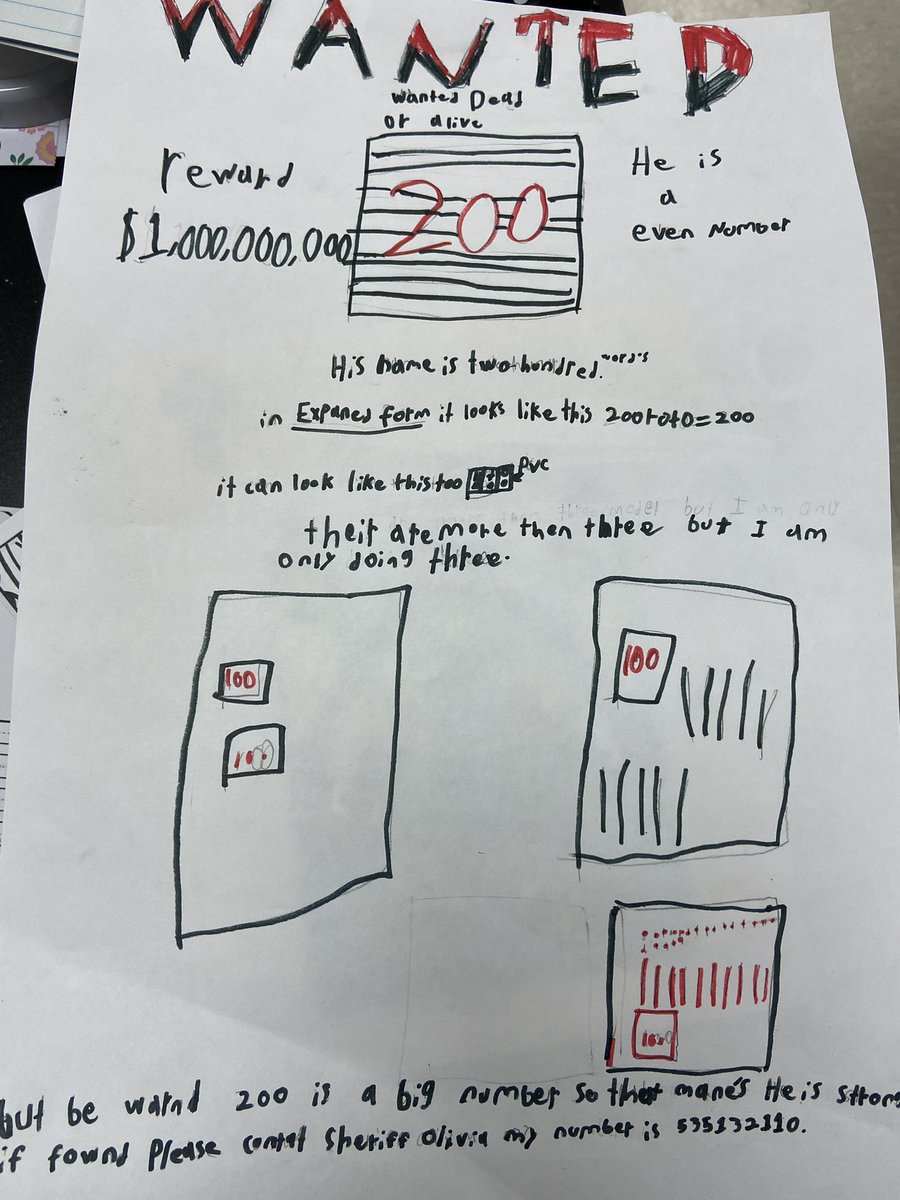 WANTED
wanted Dead
or alive
reward
$1,000,000,000
200
He is
a
even number
His name is twohundred. word's
in Expaned form it looks like this 200+0+0=200
it can look like this too PVC
their are more then three but I am
only doing three.
100
100
100
100
but be warnd 200 is a big number so that mane's He is strong
if fownd Please contat Sheriff Olivia my number is 535132110.